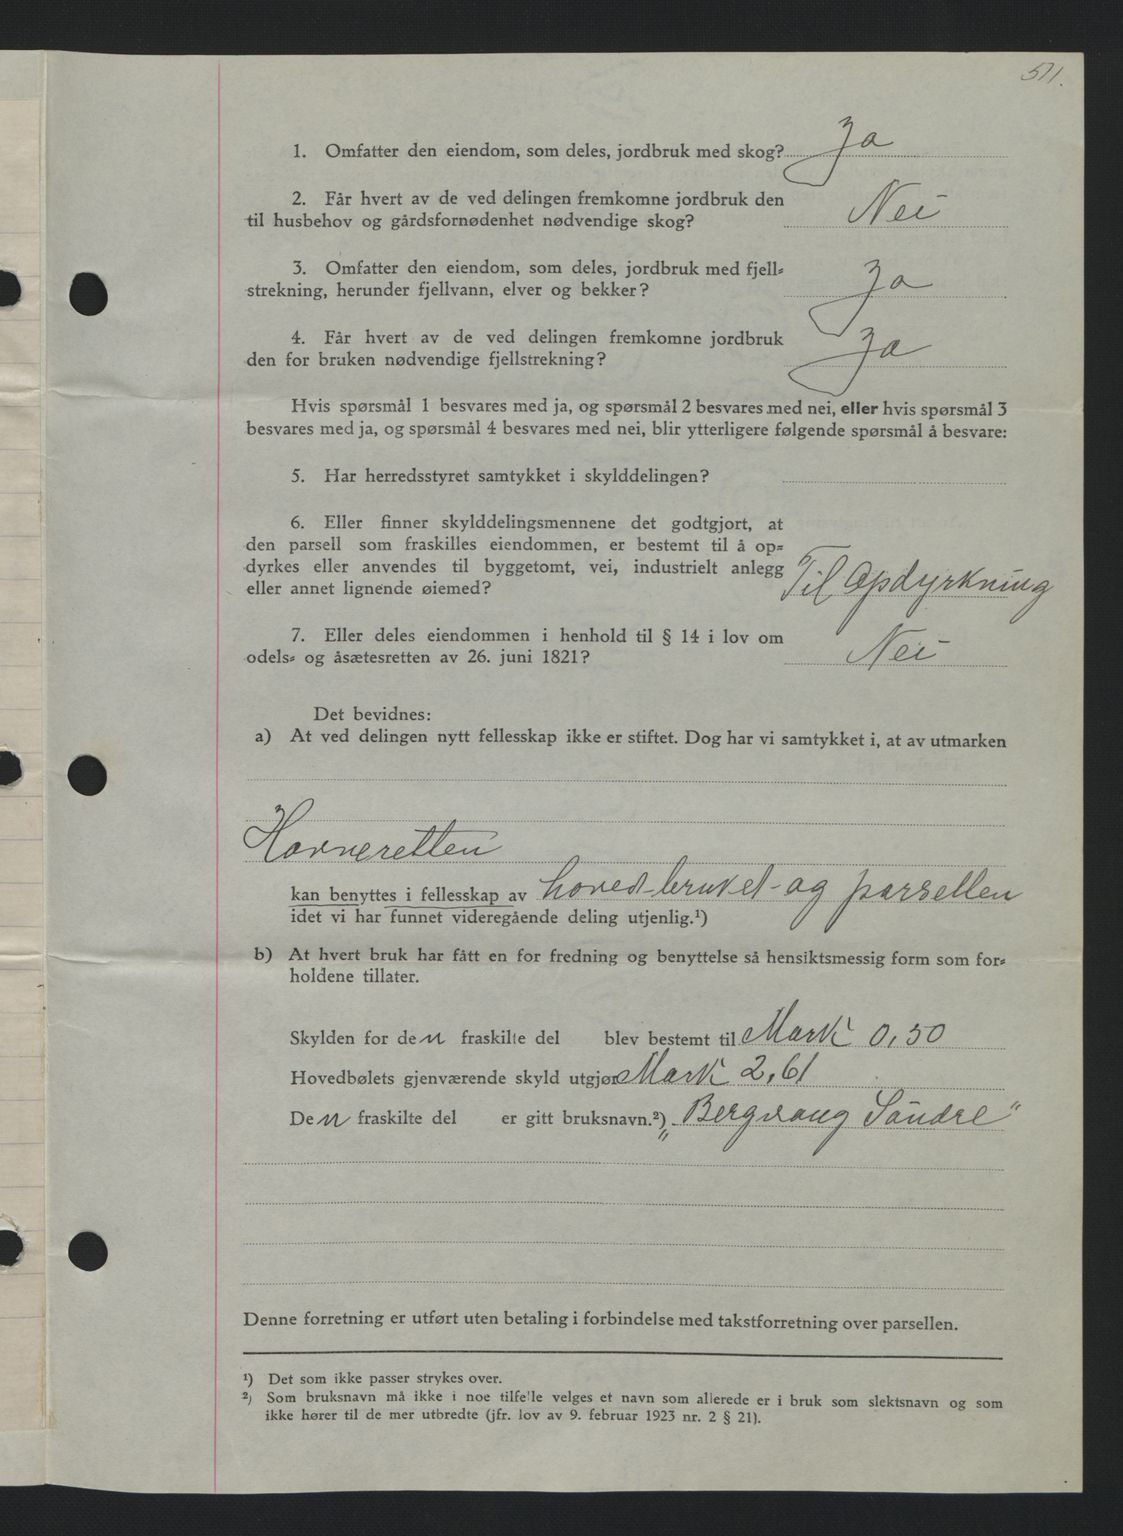 511.
1. Omfatter den eiendom, som deles, jordbruk med skog? Ja
2. Får hvert av de ved delingen fremkomne jordbruk den
til husbehov og gårdsfornødenhet nødvendige skog? Nei
3. Omfatter den eiendom, som deles, jordbruk med fjell=
strekning, herunder fjellvann, elver og bekker? Ja
4. Får hvert av de ved delingen fremkomne jordbruk
den for bruken nødvendige fjellstrekning? Ja
Hvis spørsmål 1 besvares med ja, og spørsmål 2 besvares med nei, eller hvis spørsmål 3
besvares med ja, og spørsmål 4 besvares med nei, blir ytterligere følgende spørsmål å besvare:
5. Har herredsstyret samtykket i skylddelingen?
6. Eller finner skylddelingsmennene det godtgjort, at
den parsell som fraskilles eiendommen, er bestemt til å op=
dyrkes eller anvendes til byggetomt, vei, industrielt anlegg
eller annet lignende øiemed? Til Opdyrkning
7. Eller deles eiendommen i henhold til § 14 i lov om
odels= og åsætesretten av 26. juni 1821? Nei
Det bevidnes:
a) At ved delingen nytt fellesskap ikke er stiftet. Dog har vi samtykket i, at av utmarken
Havneretten
kan benyttes i fellesskap av hoved-bruket-og parsellen
idet vi har funnet videregående deling utjenlig.¹)
b) At hvert bruk har fått en for fredning og benyttelse så hensiktsmessig form som for=
holdene tillater.
Skylden for den fraskilte del blev bestemt til Mark 0,50
Hovedbølets gjenværende skyld utgjør Mark 2,61
Den fraskilte del er gitt bruksnavn.²) „Bergvang Söndre"
Denne forretning er utført uten betaling i forbindelse med takstforretning over parsellen.
¹) Det som ikke passer strykes over.
²) Som bruksnavn må ikke i noe tilfelle velges et navn som allerede er i bruk som slektsnavn og som
ikke hører til de mer utbredte (jfr. lov av 9. februar 1923 nr. 2 § 21).